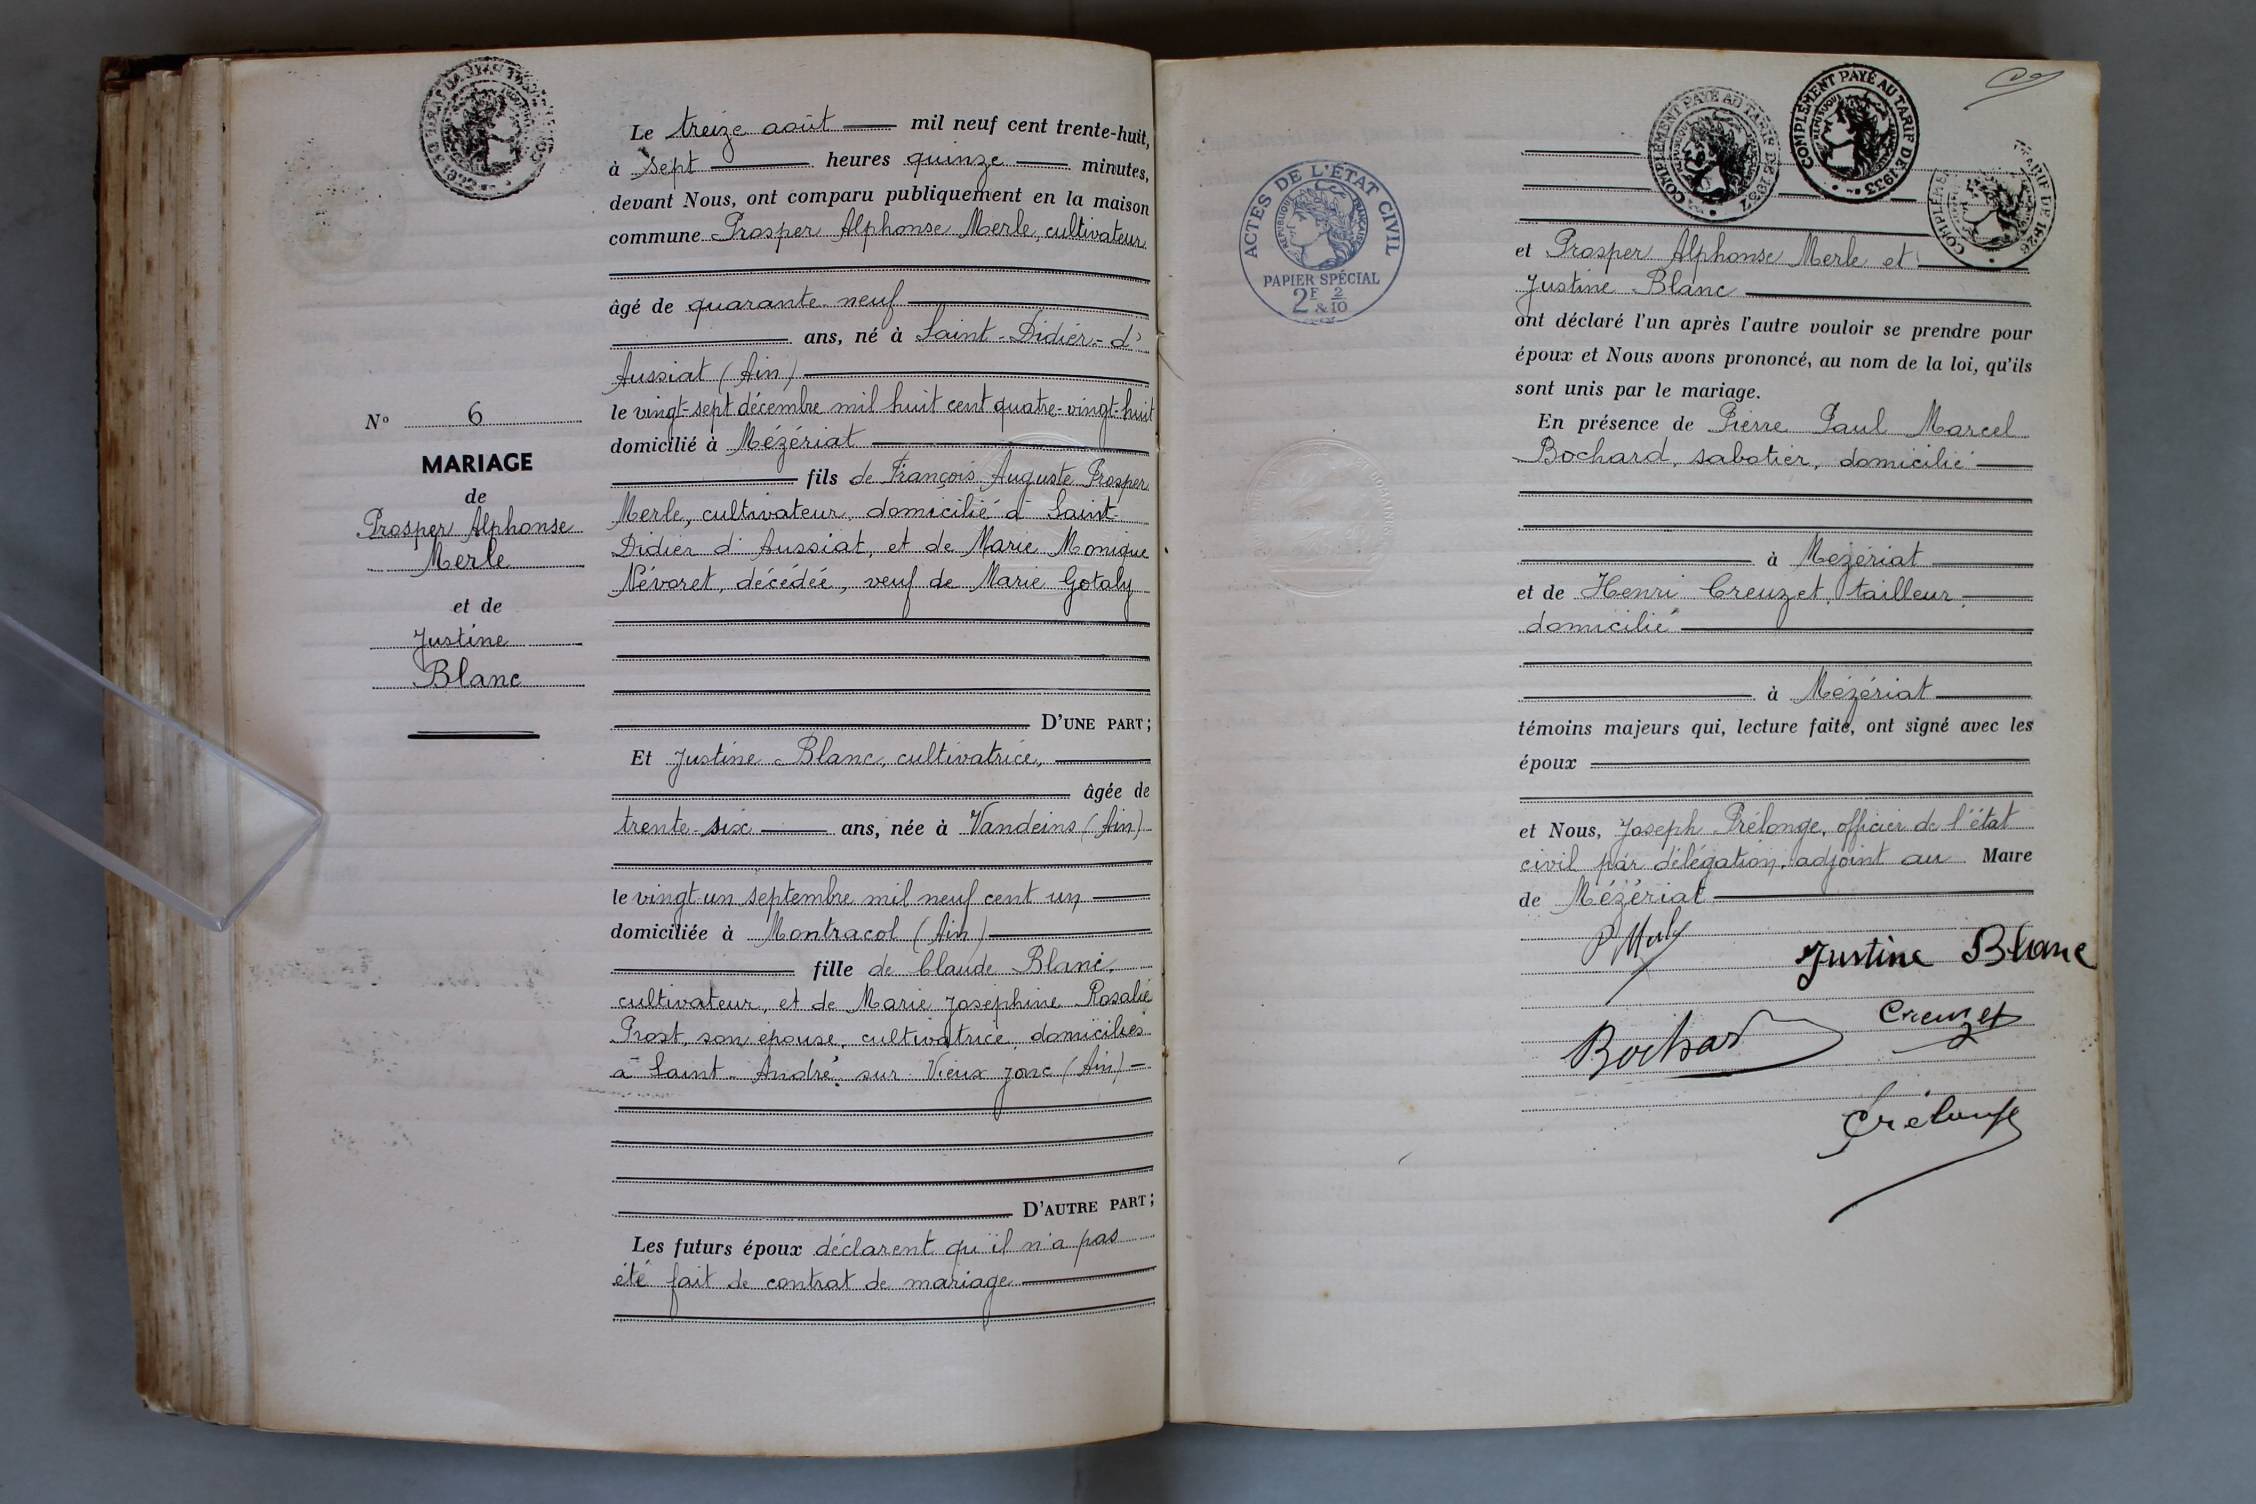 Le treize août mil neuf cent trente-huit,
à sept heures quinze minutes,
devant Nous, ont comparu publiquement en la maison
commune Prosper Alphonse Merle, cultivateur
âgé de quarante-neuf
ans, né à Saint-Didier-d'
Aussiat (Ain)
le vingt-sept décembre mil huit cent quatre-vingt-huit
domicilié à Mézériat
fils de François Auguste Prosper
Merle, cultivateur, domicilié à Saint-
Didier d'Aussiat, et de Marie Monique
Névoret, décédée, veuf de Marie Gotaly
D'UNE PART;
Et Justine Blanc, cultivatrice,
âgée de
trente-six ans, née à Vandeins (Ain)
le vingt-un septembre mil neuf cent un
domiciliée à Montracol (Ain)
fille de Claude Blanc,
cultivateur, et de Marie Joséphine Rosalie
Prost, son épouse, cultivatrice, domiciliés
à Saint-André sur Vieux Jonc (Ain)
D'AUTRE PART;
Les futurs époux déclarent qu'il n'a pas
été fait de contrat de mariage
N° 6
MARIAGE
de
Prosper Alphonse
Merle
et de
Justine
Blanc
ACTES DE L'ÉTAT CIVIL
RÉPUBLIQUE FRANÇAISE
PAPIER SPÉCIAL
2F 2
& 10
COMPLÉMENT PAYÉ AU TARIF DE 1937
COMPLÉMENT PAYÉ AU TARIF DE 1933
et Prosper Alphonse Merle et
Justine Blanc
ont déclaré l'un après l'autre vouloir se prendre pour
époux et Nous avons prononcé, au nom de la loi, qu'ils
sont unis par le mariage.
En présence de Pierre Paul Marcel
Bochard, sabotier, domicilié
à Mézériat
et de Henri Creuzet, tailleur,
domicilié
à Mézériat
témoins majeurs qui, lecture faite, ont signé avec les
époux
et Nous, Joseph Prélonge, officier de l'état
civil par délégation, adjoint au Maire
de Mézériat
P Merle
Justine Blanc
Creuzet
Bochard
Prélonge